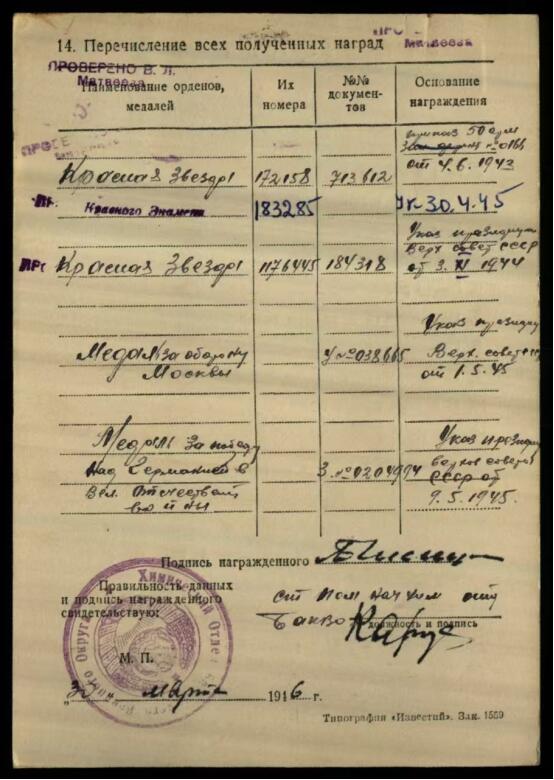 14. Перечисление всех полученных наград
Матвеева
ПРОВЕРЕНО В. Л.
Матвеева
Наименование орденов, медалей
Их номера
№№ документов
Основание награждения
приказ 50 арм
№ 0166
от 4.6.1943
Красная Звезда 172158 713612
Красного Знамени 183285 Ук 30.4.45
Указ президиу
Верх совет СССР
Красная Звезда 1176445 184318 от 3. XI 1944
Указ президиу
Медаль за оборону У №038665 Верх. совет
Москвы от 1.5.45
Медаль за победу Указ президи
над Германией в З. №0204994
Вел. Отечествен СССР от
войны 9.5.1945.
Подпись награжденного
Правильность данных
и подпись награжденного
свидетельствую:
ст пом нач хим отд
должность и подпись
М. П.
марта 1946 г.
Химический Отдел
Округа
Типография «Известий». Зак. 1559